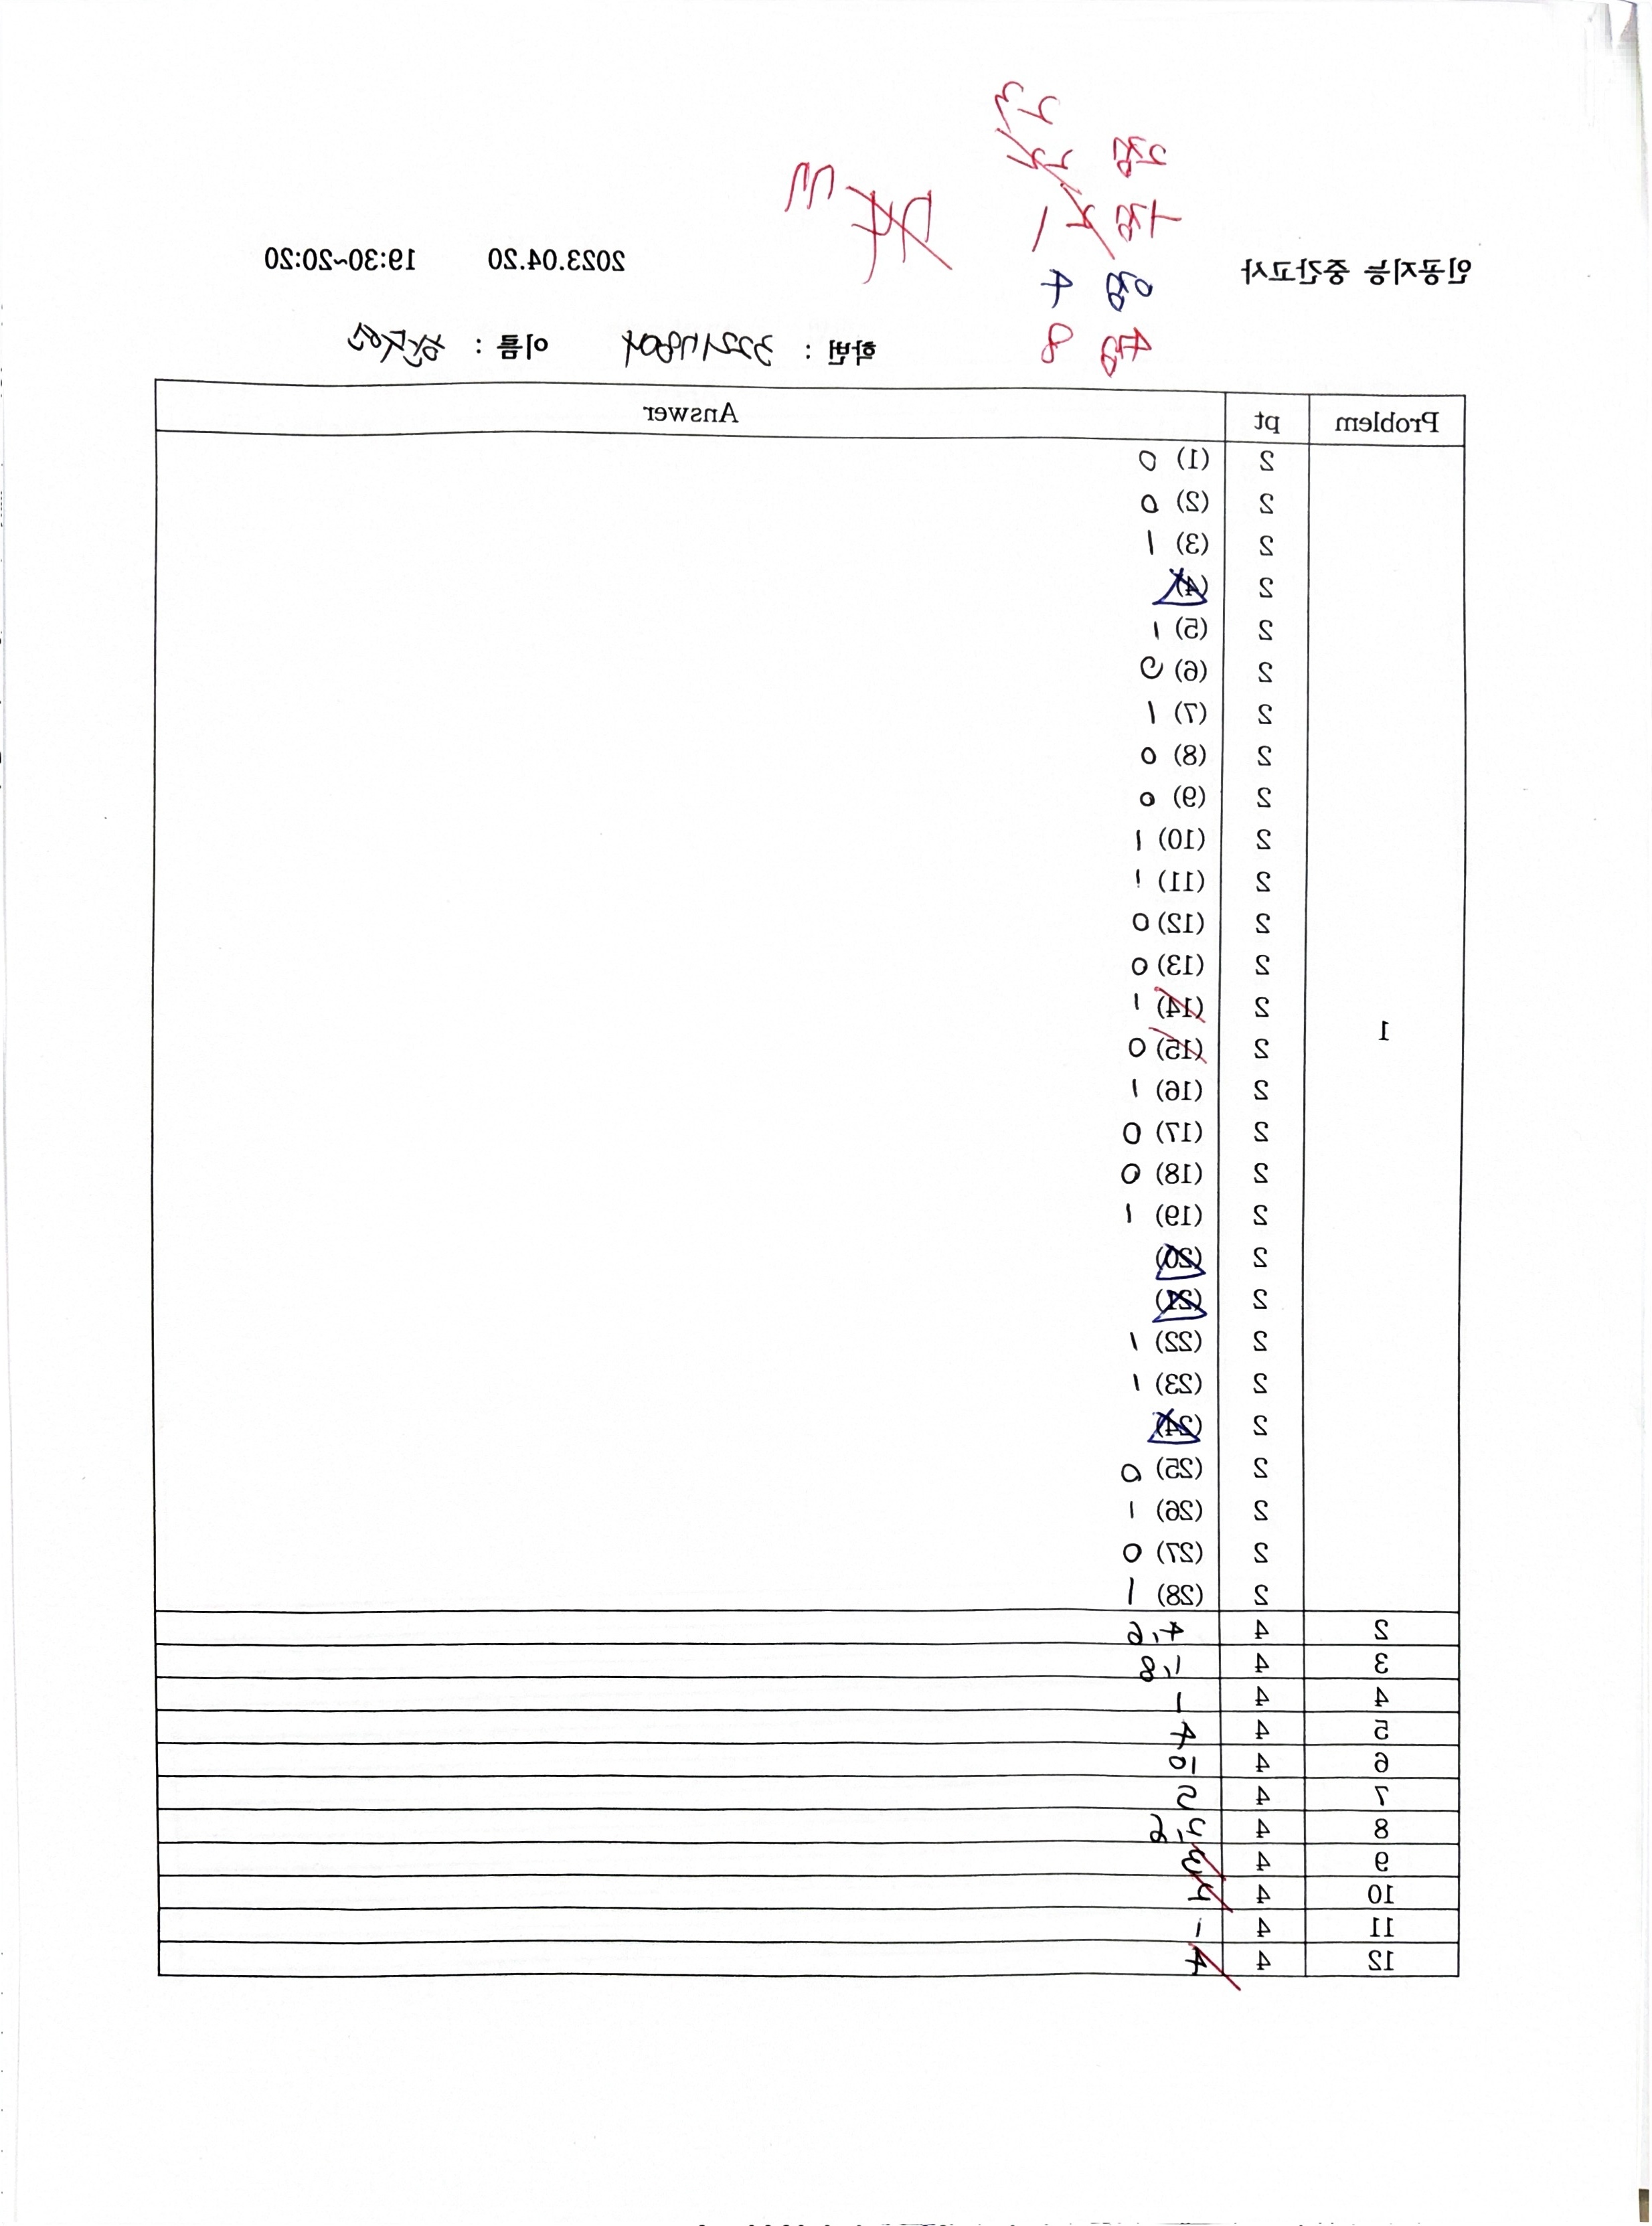 2점
4점 1
0점 4
4점 8
인공지능 중간고사 2023.04.20 19:30~20:20
학번 : 이름 :
Problem pt Answer
1
2 (1) 0
2 (2) 0
2 (3) 1
2 (4)
2 (5) 1
2 (6) 0
2 (7) 1
2 (8) 0
2 (9) 0
2 (10) 1
2 (11) 1
2 (12) 0
2 (13) 0
2 (14) 1
2 (15) 0
2 (16) 1
2 (17) 0
2 (18) 0
2 (19) 1
2 (20)
2 (21)
2 (22) 1
2 (23) 1
2 (24)
2 (25) 0
2 (26) 1
2 (27) 0
2 (28) 1
2 4 4, 6
3 4 1, 8
4 4 1
5 4 4
6 4 10
7 4 5
8 4 2, 6
9 4 3
10 4 4
11 4 1
12 4 4